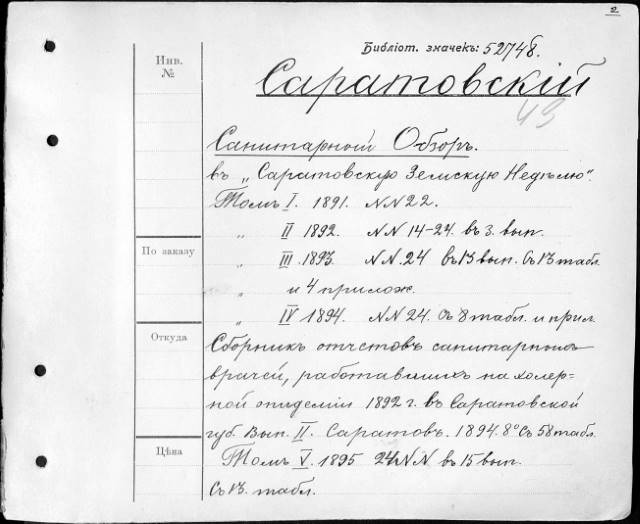 2
Библіот. значекъ: 52748.
Саратовскій
43
Инв.
№
Санитарный Обзоръ.
въ „Саратовскую Земскую Недѣлю".
Томъ I. 1891. NN 22.
„ II 1892. NN 14-24. въ 3. вып.
По заказу
„ III. 1893. NN. 24 въ 13 вып. Съ 13 табл.
и 4 прилож.
„ IV 1894. NN 24. Съ 8 табл. и прил.
Откуда
Сборникъ отчетовъ санитарныхъ
врачей, работавшихъ на холер-
ной эпидеміи 1892 г. въ Саратовской
губ. Вып. II. Саратовъ. 1894. 8° Съ 58 табл.
Цѣна
Томъ V. 1895 24 NN въ 15 вып.
Съ 13. табл.